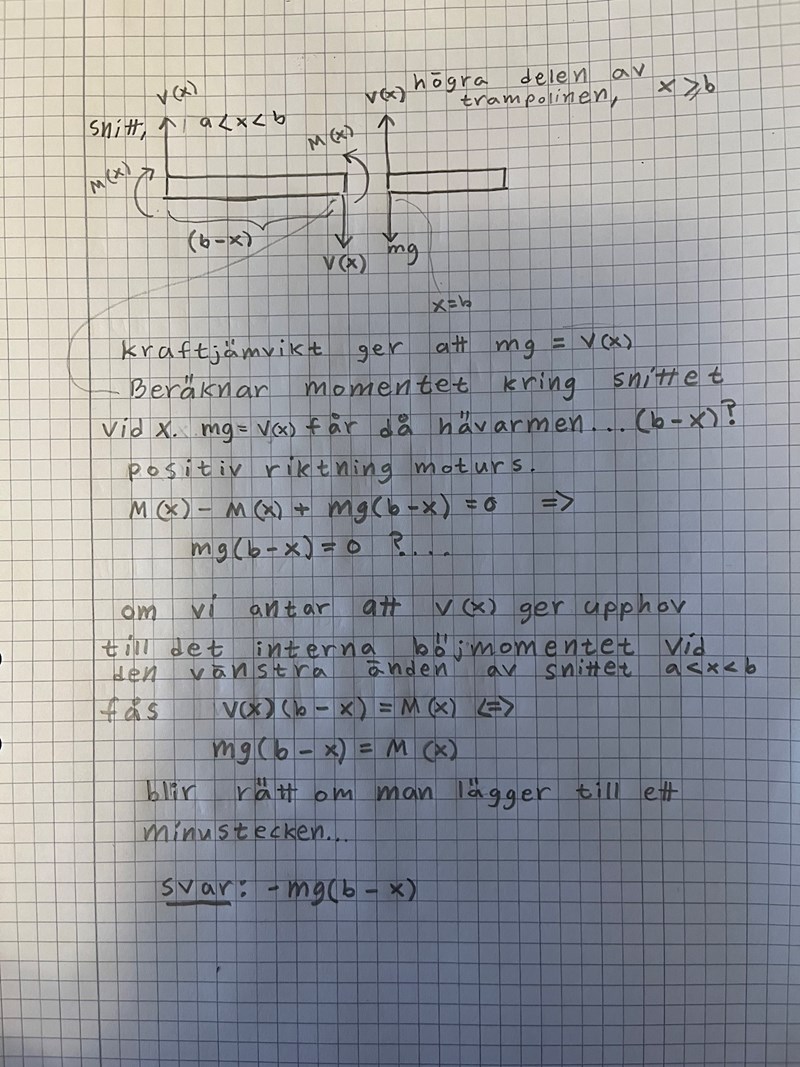 V(x)
snitt, a<x<b
M(x)
M(x)
(b-x)
V(x)
V(x) högra delen av
trampolinen, x⩾b
mg
x=b
kraftjämvikt ger att mg = V(x)
Beräknar momentet kring snittet
vid x. mg=V(x) får då hävarmen... (b-x)?
positiv riktning moturs.
M(x) - M(x) + mg(b-x) = 0 =>
mg(b-x) = 0 ?...
om vi antar att V(x) ger upphov
till det interna böjmomentet vid
den vänstra änden av snittet a<x<b
fås V(x)(b-x) = M(x) <=>
mg(b-x) = M(x)
blir rätt om man lägger till ett
minustecken...
svar: -mg(b-x)